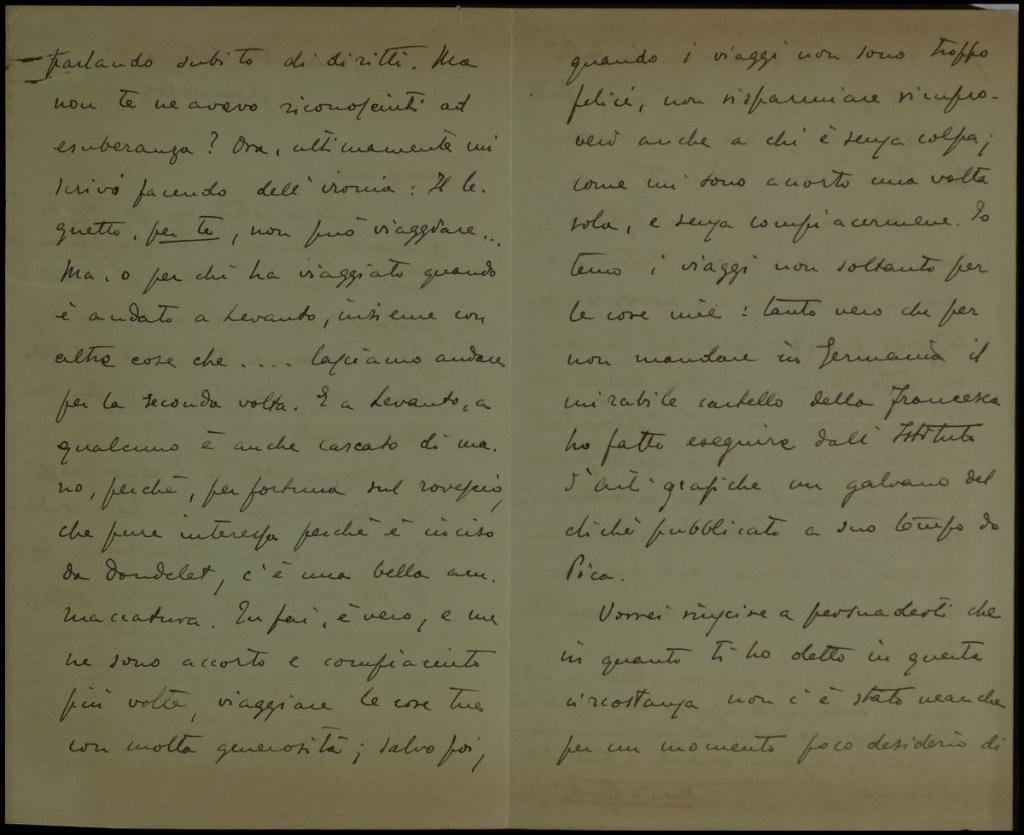 parlando subito di diritti. Ma
non te ne avevo riconosciuti ad
esuberanza? Ora, ultimamente mi
scrivi facendo dell'ironia: Il le-
gnetto, per te, non può viaggiare...
Ma, o per chi ha viaggiato quando
è andato a Levanto, insieme con
altre cose che .... lasciamo andare
per la seconda volta. E a Levanto, a
qualcuno è anche cascato di ma-
no, perchè, per fortuna sul rovescio,
che pure interessa perchè è inciso
da Doudelet, c'è una bella am-
maccatura. Tu fai, è vero, e me
ne sono accorto e compiaciuto
più volte, viaggiare le cose tue
con molta generosità; salvo poi,
quando i viaggi non sono troppo
felici, non risparmiare rimpro-
veri anche a chi è senza colpa;
come mi sono accorto una volta
sola, e senza compiacermene. Io
temo i viaggi non soltanto per
le cose mie: tanto vero che per
non mandare in Germania il
mirabile cartello della Francesca
ho fatto eseguire dall'Istituto
d'arti grafiche un galvano del
cliché pubblicato a suo tempo da
Pica.
Vorrei riuscire a persuaderti che
in quanto ti ho detto in questa
circostanza non c'è stato neanche
per un momento poco desiderio di